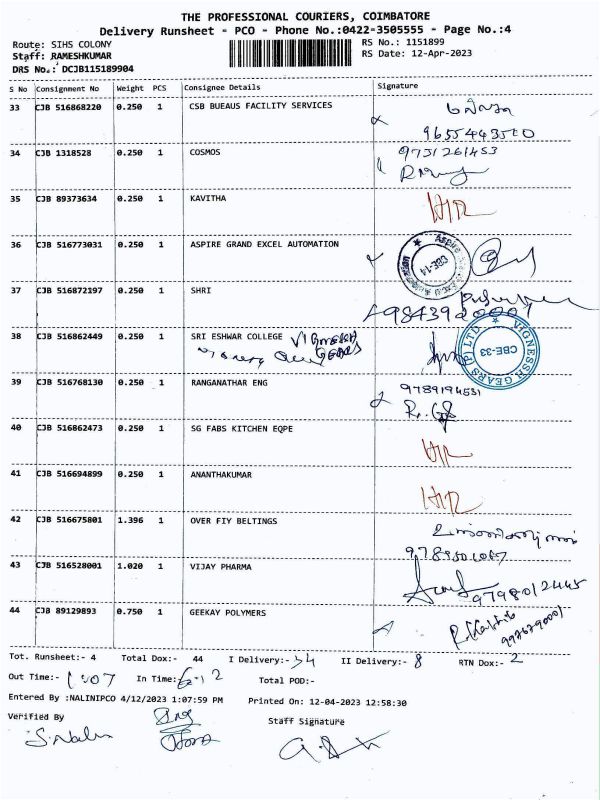 THE PROFESSIONAL COURIERS, COIMBATORE
Delivery Runsheet - PCO - Phone No.:0422-3505555 - Page No.:4
Route: SIHS COLONY RS No.: 1151899
Staff: RAMESHKUMAR RS Date: 12-Apr-2023
DRS No.: DCJB115189904
S No Consignment No Weight PCS Consignee Details Signature
33 CJB 516868220 0.250 1 CSB BUEAUS FACILITY SERVICES
9655443510
34 CJB 1318528 0.250 1 COSMOS 9731261453
35 CJB 89373634 0.250 1 KAVITHA
36 CJB 516773031 0.250 1 ASPIRE GRAND EXCEL AUTOMATION
CBE-14
37 CJB 516872197 0.250 1 SHRI
38 CJB 516862449 0.250 1 SRI ESHWAR COLLEGE VIGNESH GEARS
VIGNESSH GEARS (P) LTD. CBE-33
39 CJB 516768130 0.250 1 RANGANATHAR ENG 9789194531
40 CJB 516862473 0.250 1 SG FABS KITCHEN EQPE
41 CJB 516694899 0.250 1 ANANTHAKUMAR
42 CJB 516675801 1.396 1 OVER FIY BELTINGS
43 CJB 516528001 1.020 1 VIJAY PHARMA
9798012445
44 CJB 89129893 0.750 1 GEEKAY POLYMERS
Tot. Runsheet:- 4 Total Dox:- 44 I Delivery:- 34 II Delivery:- 8 RTN Dox:- 2
Out Time:- In Time:- 6.12 Total POD:-
Entered By :NALINIPCO 4/12/2023 1:07:59 PM Printed On: 12-04-2023 12:58:30
Verified By Staff Signature
S. Nalin